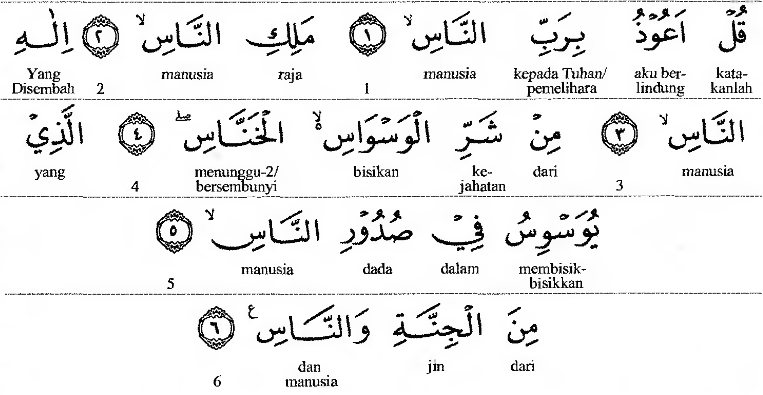 قُلْ اَعُوْذُ بِرَبِّ النَّاسِۙ ١ مَلِكِ النَّاسِۙ ٢ اِلٰهِ
kata-kanlah aku ber-lindung kepada Tuhan/pemelihara manusia 1 raja manusia 2 Yang Disembah
النَّاسِۙ ٣ مِنْ شَرِّ الْوَسْوَاسِ ەۙ الْخَنَّاسِۖ ٤ الَّذِيْ
manusia 3 dari ke-jahatan bisikan menunggu-2/bersembunyi 4 yang
يُوَسْوِسُ فِيْ صُدُوْرِ النَّاسِۙ ٥
membisik-bisikkan dalam dada manusia 5
مِنَ الْجِنَّةِ وَالنَّاسِ ع ٦
dari jin dan manusia 6